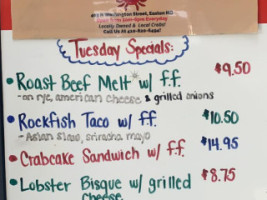 Washington Street, Easton MD
Locally Owned & Local Crabs!
Call Us At
Tuesday Specials:
• Roast Beef Melt w/ f.f. $9.50
- on rye, american cheese & grilled onions
• Rockfish Taco w/ f.f. $10.50
- Asian slaw, sriracha mayo
• Crabcake Sandwich w/ f.f. $14.95
• Lobster Bisque w/ grilled $8.75
Cheese